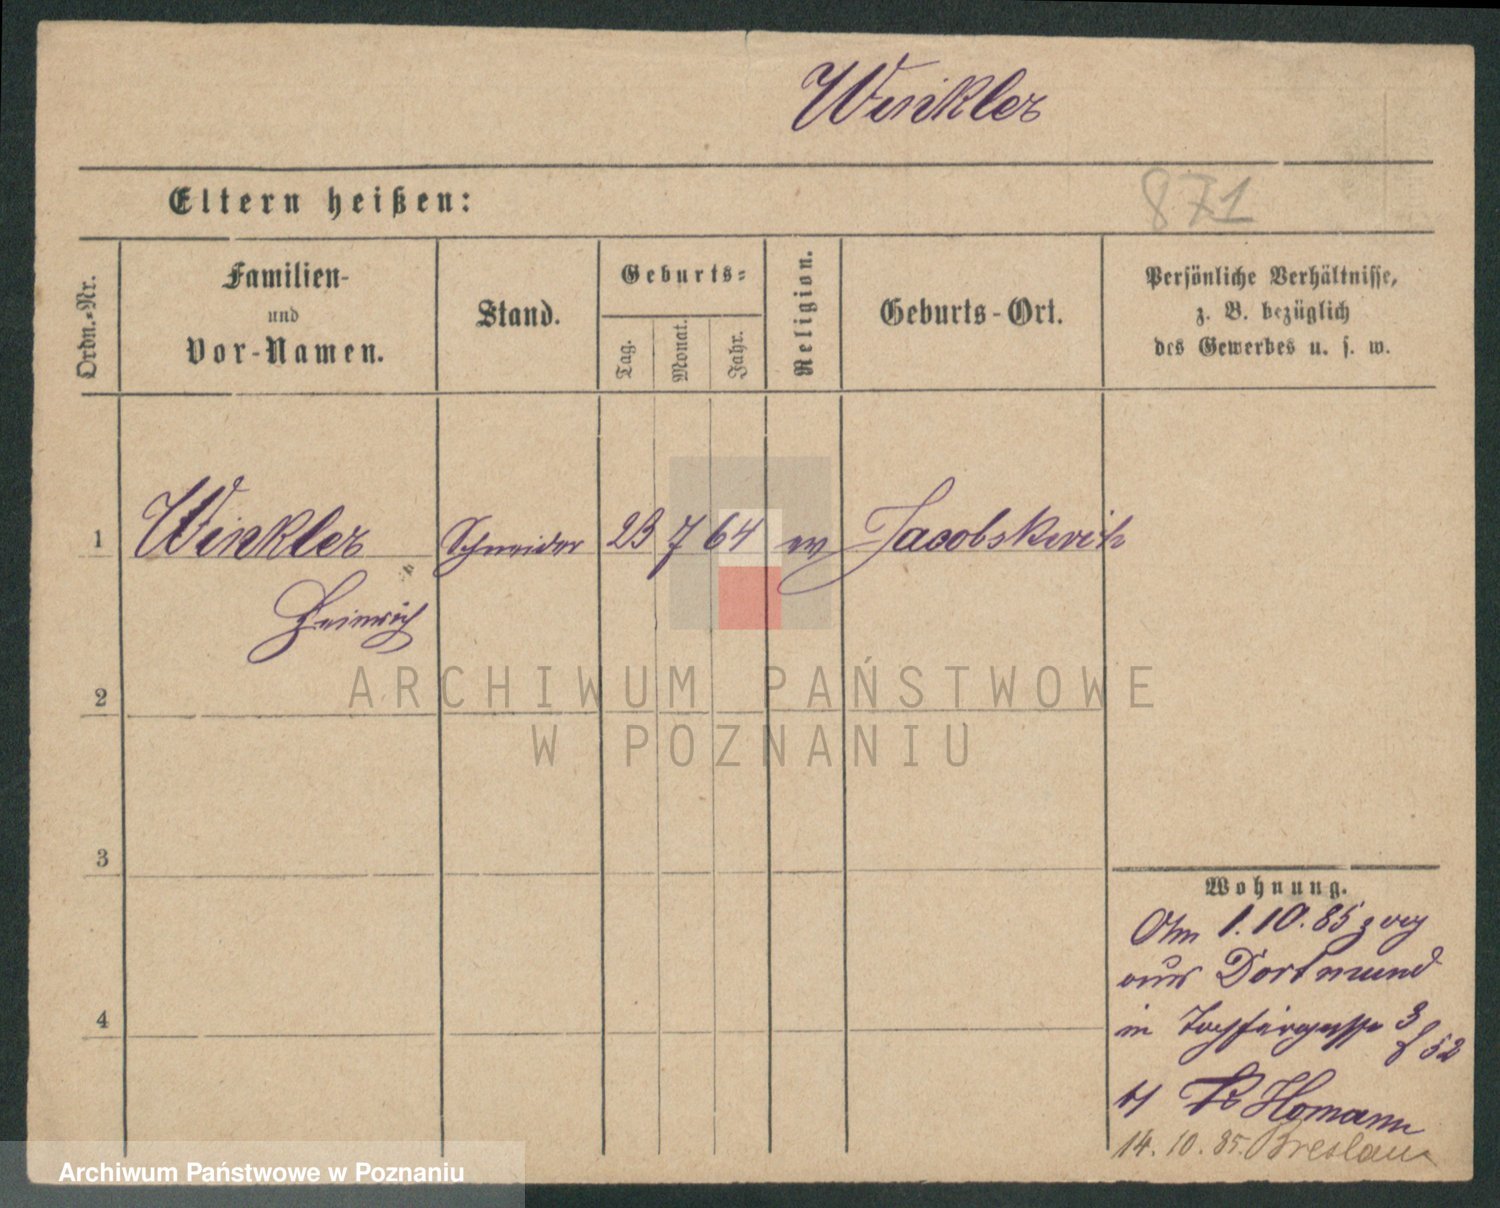 Winkler
Eltern heißen:
871
Ordn.-Nr.
Familien-
und
Vor-Namen.
Stand.
Geburts-
Tag.
Monat.
Jahr.
Religion.
Geburts-Ort.
Persönliche Verhältnisse,
z. B. bezüglich
des Gewerbes u. s. w.
1
Winkler
Heinrich
Schneider
23
7
64
Jacobskirch
2
3
4
Wohnung.
Am 1.10.85 zog
aus Dortmund
in 3
52
Homann
14. 10. 85. Breslau
ARCHIWUM PAŃSTWOWE
W POZNANIU
Archiwum Państwowe w Poznaniu